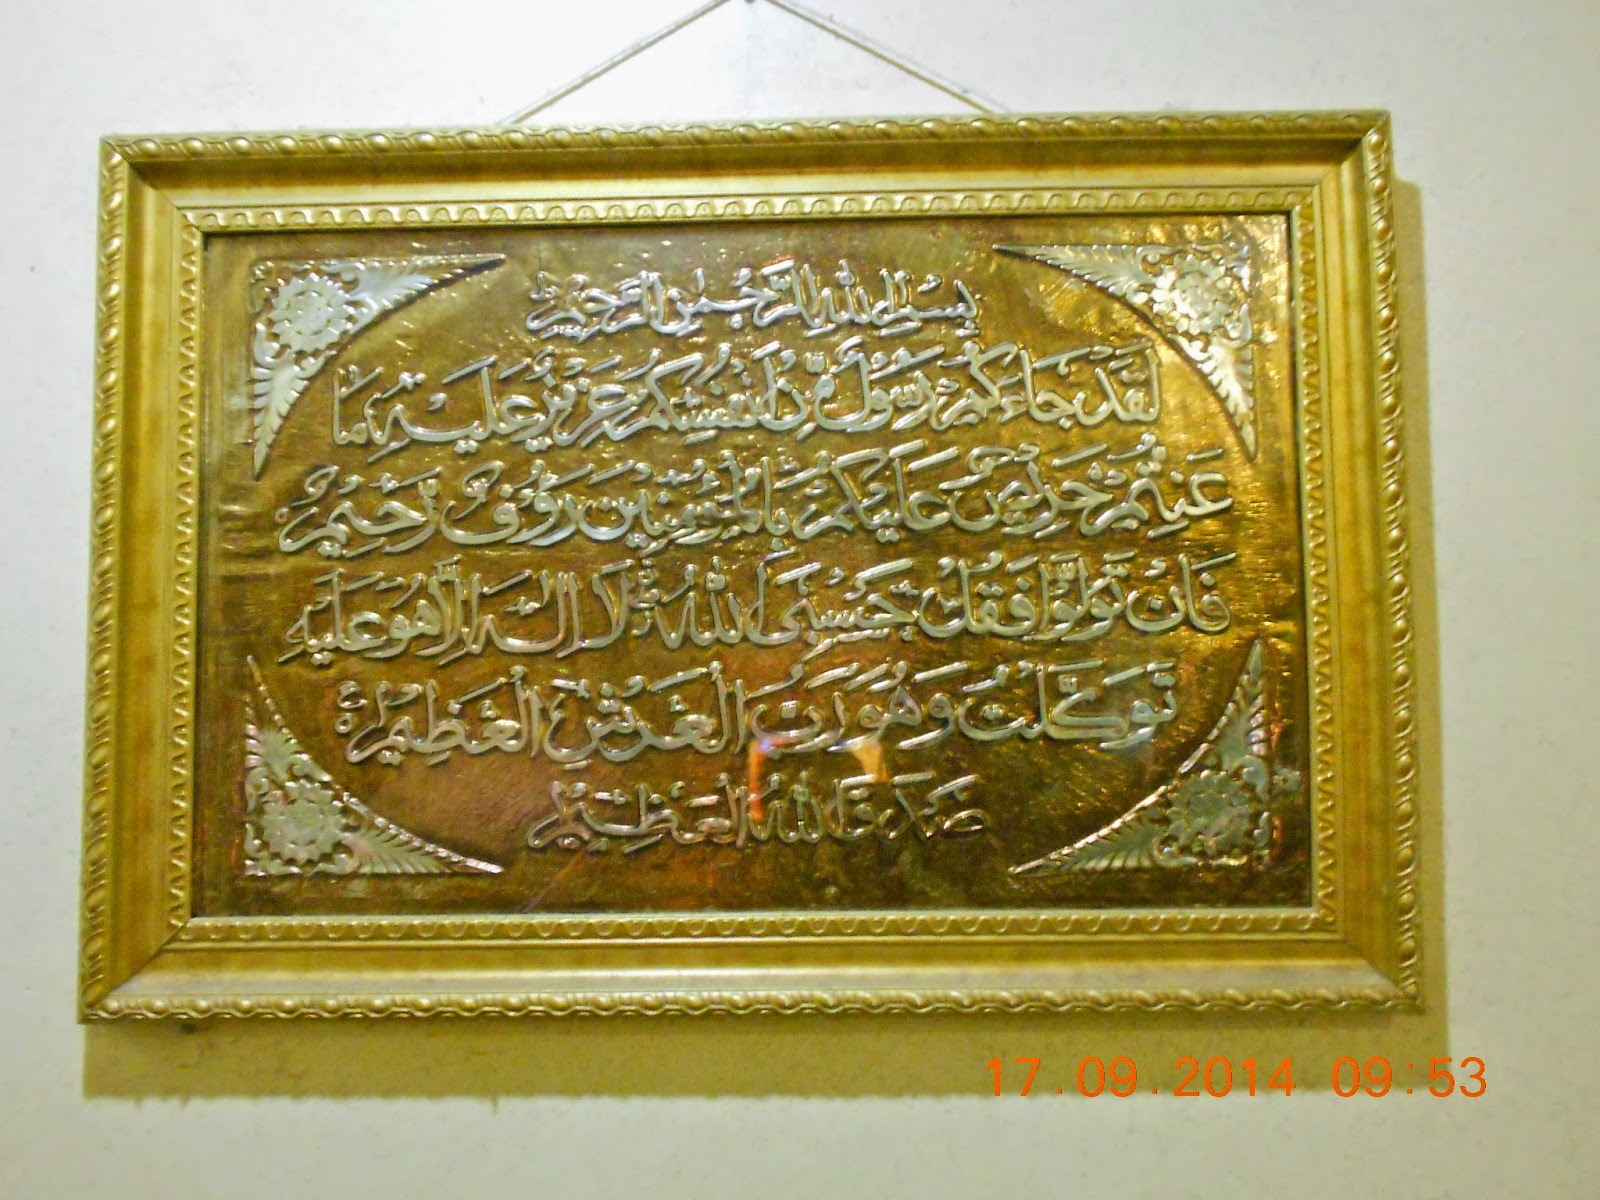 بِسْمِ اللهِ الرَّحْمٰنِ الرَّحِيْمِ
لَقَدْ جَاءَكُمْ رَسُوْلٌ مِّنْ اَنْفُسِكُمْ عَزِيْزٌ عَلَيْهِ مَا
عَنِتُّمْ حَرِيْصٌ عَلَيْكُمْ بِالْمُؤْمِنِيْنَ رَءُوْفٌ رَّحِيْمٌ
فَاِنْ تَوَلَّوْا فَقُلْ حَسْبِيَ اللهُ لَا اِلٰهَ اِلَّا هُوَ عَلَيْهِ
تَوَكَّلْتُ وَهُوَ رَبُّ الْعَرْشِ الْعَظِيْمِ
صَدَقَ اللهُ الْعَظِيْمُ
17.09.2014 09:53